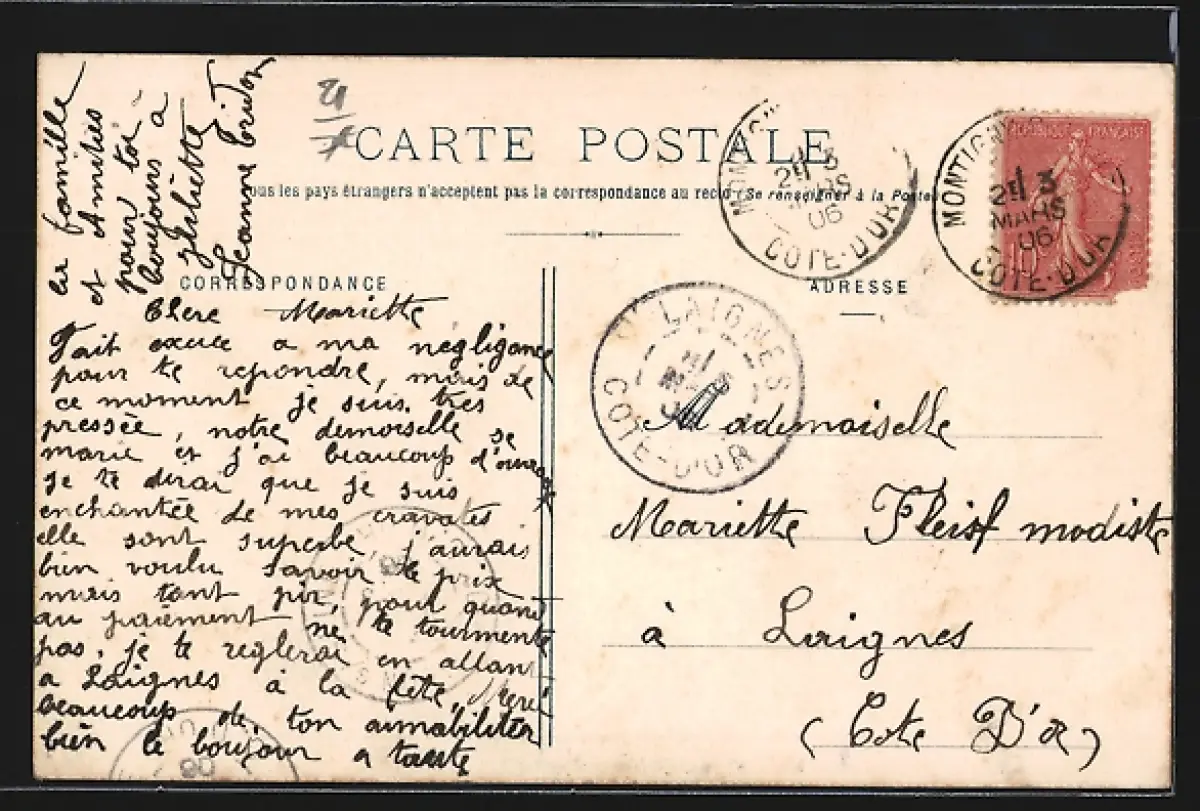 CARTE POSTALE
Tous les pays étrangers n'acceptent pas la correspondance au recto (Se renseigner à la Poste)
CORRESPONDANCE
ADRESSE
Chere Mariette
Fait excuce a ma négligance
pour te repondre, mais de
ce moment je suis tres
pressée, notre demoiselle se
marie et j'ai beaucoup d'ouvrage
je te dirai que je suis
enchantée de mes cravates
elle sont superbe, j'aurais
bien voulu savoir le prix
mais tant pis, pour quand
au paiement ne te tourmente
pas, je te reglerai en allant
a Laignes à la fête, Merci
beaucoup de ton aimabiliter
bien le boujour a tante
la famille
et Amitiés
pour toi
toujours à
Juliette
Jeanne
Mademoiselle
Mariette modiste
à Laignes
(Cote D'Or)
MONTIGNY
24 3
MARS
06
COTE-D'OR
MONTIGNY
24 3
MARS
06
COTE-D'OR
REPUBLIQUE FRANÇAISE
10
LAIGNES
COTE-D'OR